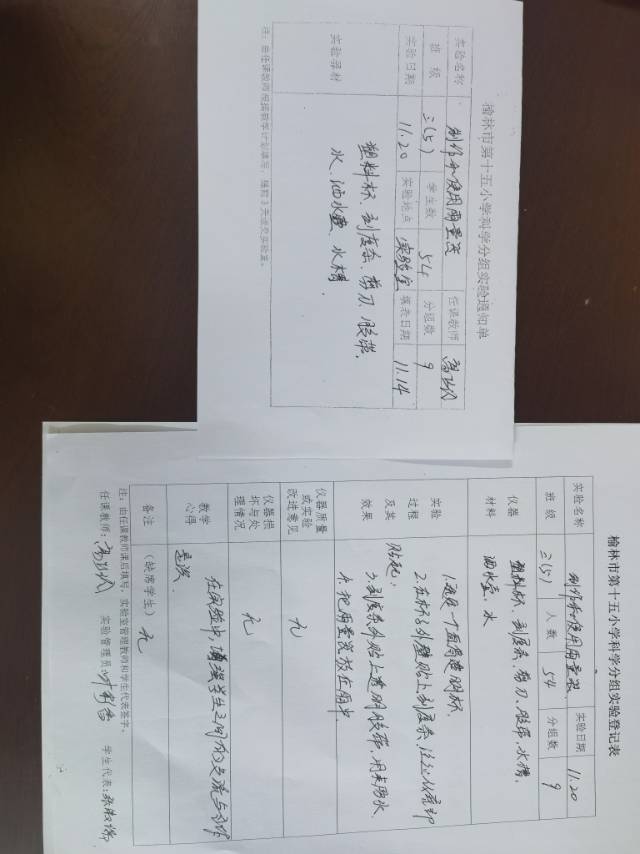 榆林市第十五小学科学分组实验通知单
实验名称 制作和使用雨量器 任课教师
班级 三(5) 学生数 54 分组数 9
实验日期 11.20 实验地点 实验室 填表日期 11.14
实验器材
塑料杯、刻度条、剪刀、胶带、
水、洒水壶、水槽
注：由任课教师根据教学计划填写，提前3天送交实验室。
榆林市第十五小学科学分组实验登记表
实验名称 制作和使用雨量器 实验日期 11.20
班级 三(5) 人数 54 分组数 9
仪器材料
塑料杯、刻度条、剪刀、胶带、水槽、
洒水壶、水
实验过程及其效果
1.选择一个直筒透明杯.
2.在杯子外壁贴上刻度条,
贴起.
3.刻度条外贴上透明胶带,用来防水.
4.把雨量器放在雨中
仪器质量或实验改进意见 无
仪器损坏与处理情况 无
教学心得
在实验中,增强学生之间的交流与合作
意识
备注（缺席学生） 无
注：由任课教师课后填写，实验室管理教师和学生代表签字。
任课教师： 实验管理员： 学生代表：